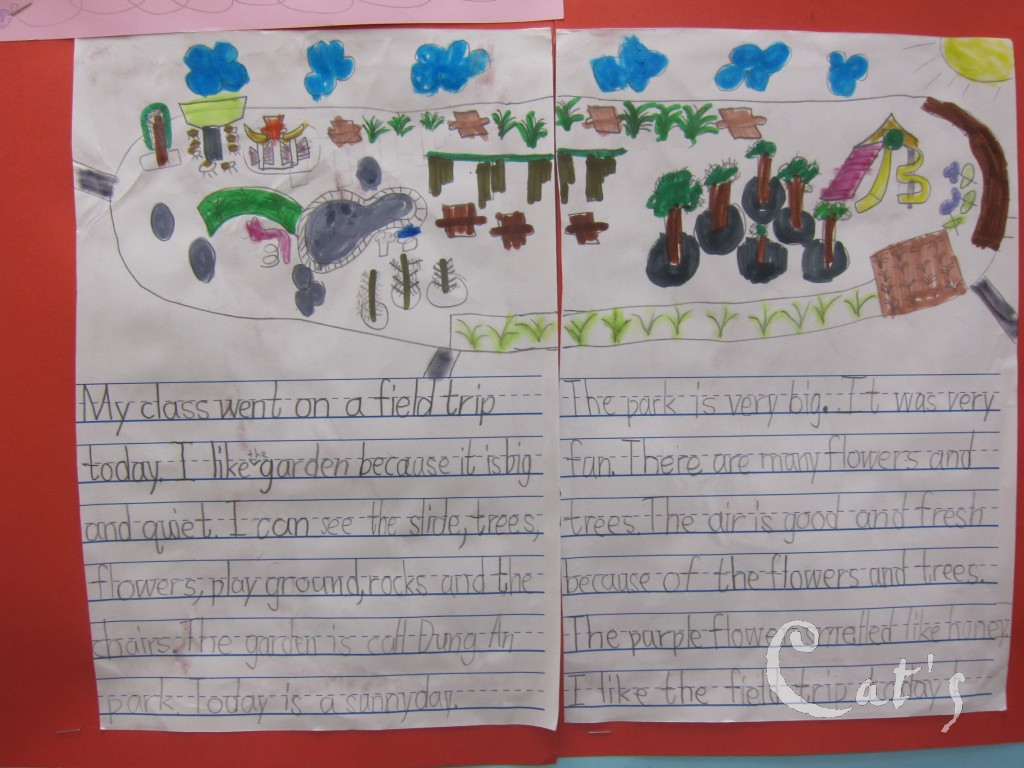 My class went on a field trip
today. I like the garden because it is big
and quiet. I can see the slide, trees,
flowers, play ground, rocks and the
chairs. The garden is call Dung An
park. Today is a sunny day.
The park is very big. It was very
fun. There are many flowers and
trees. The air is good and fresh
because of the flowers and trees.
The purple flowers smelled like honey.
I like the field trip today!
Cat's